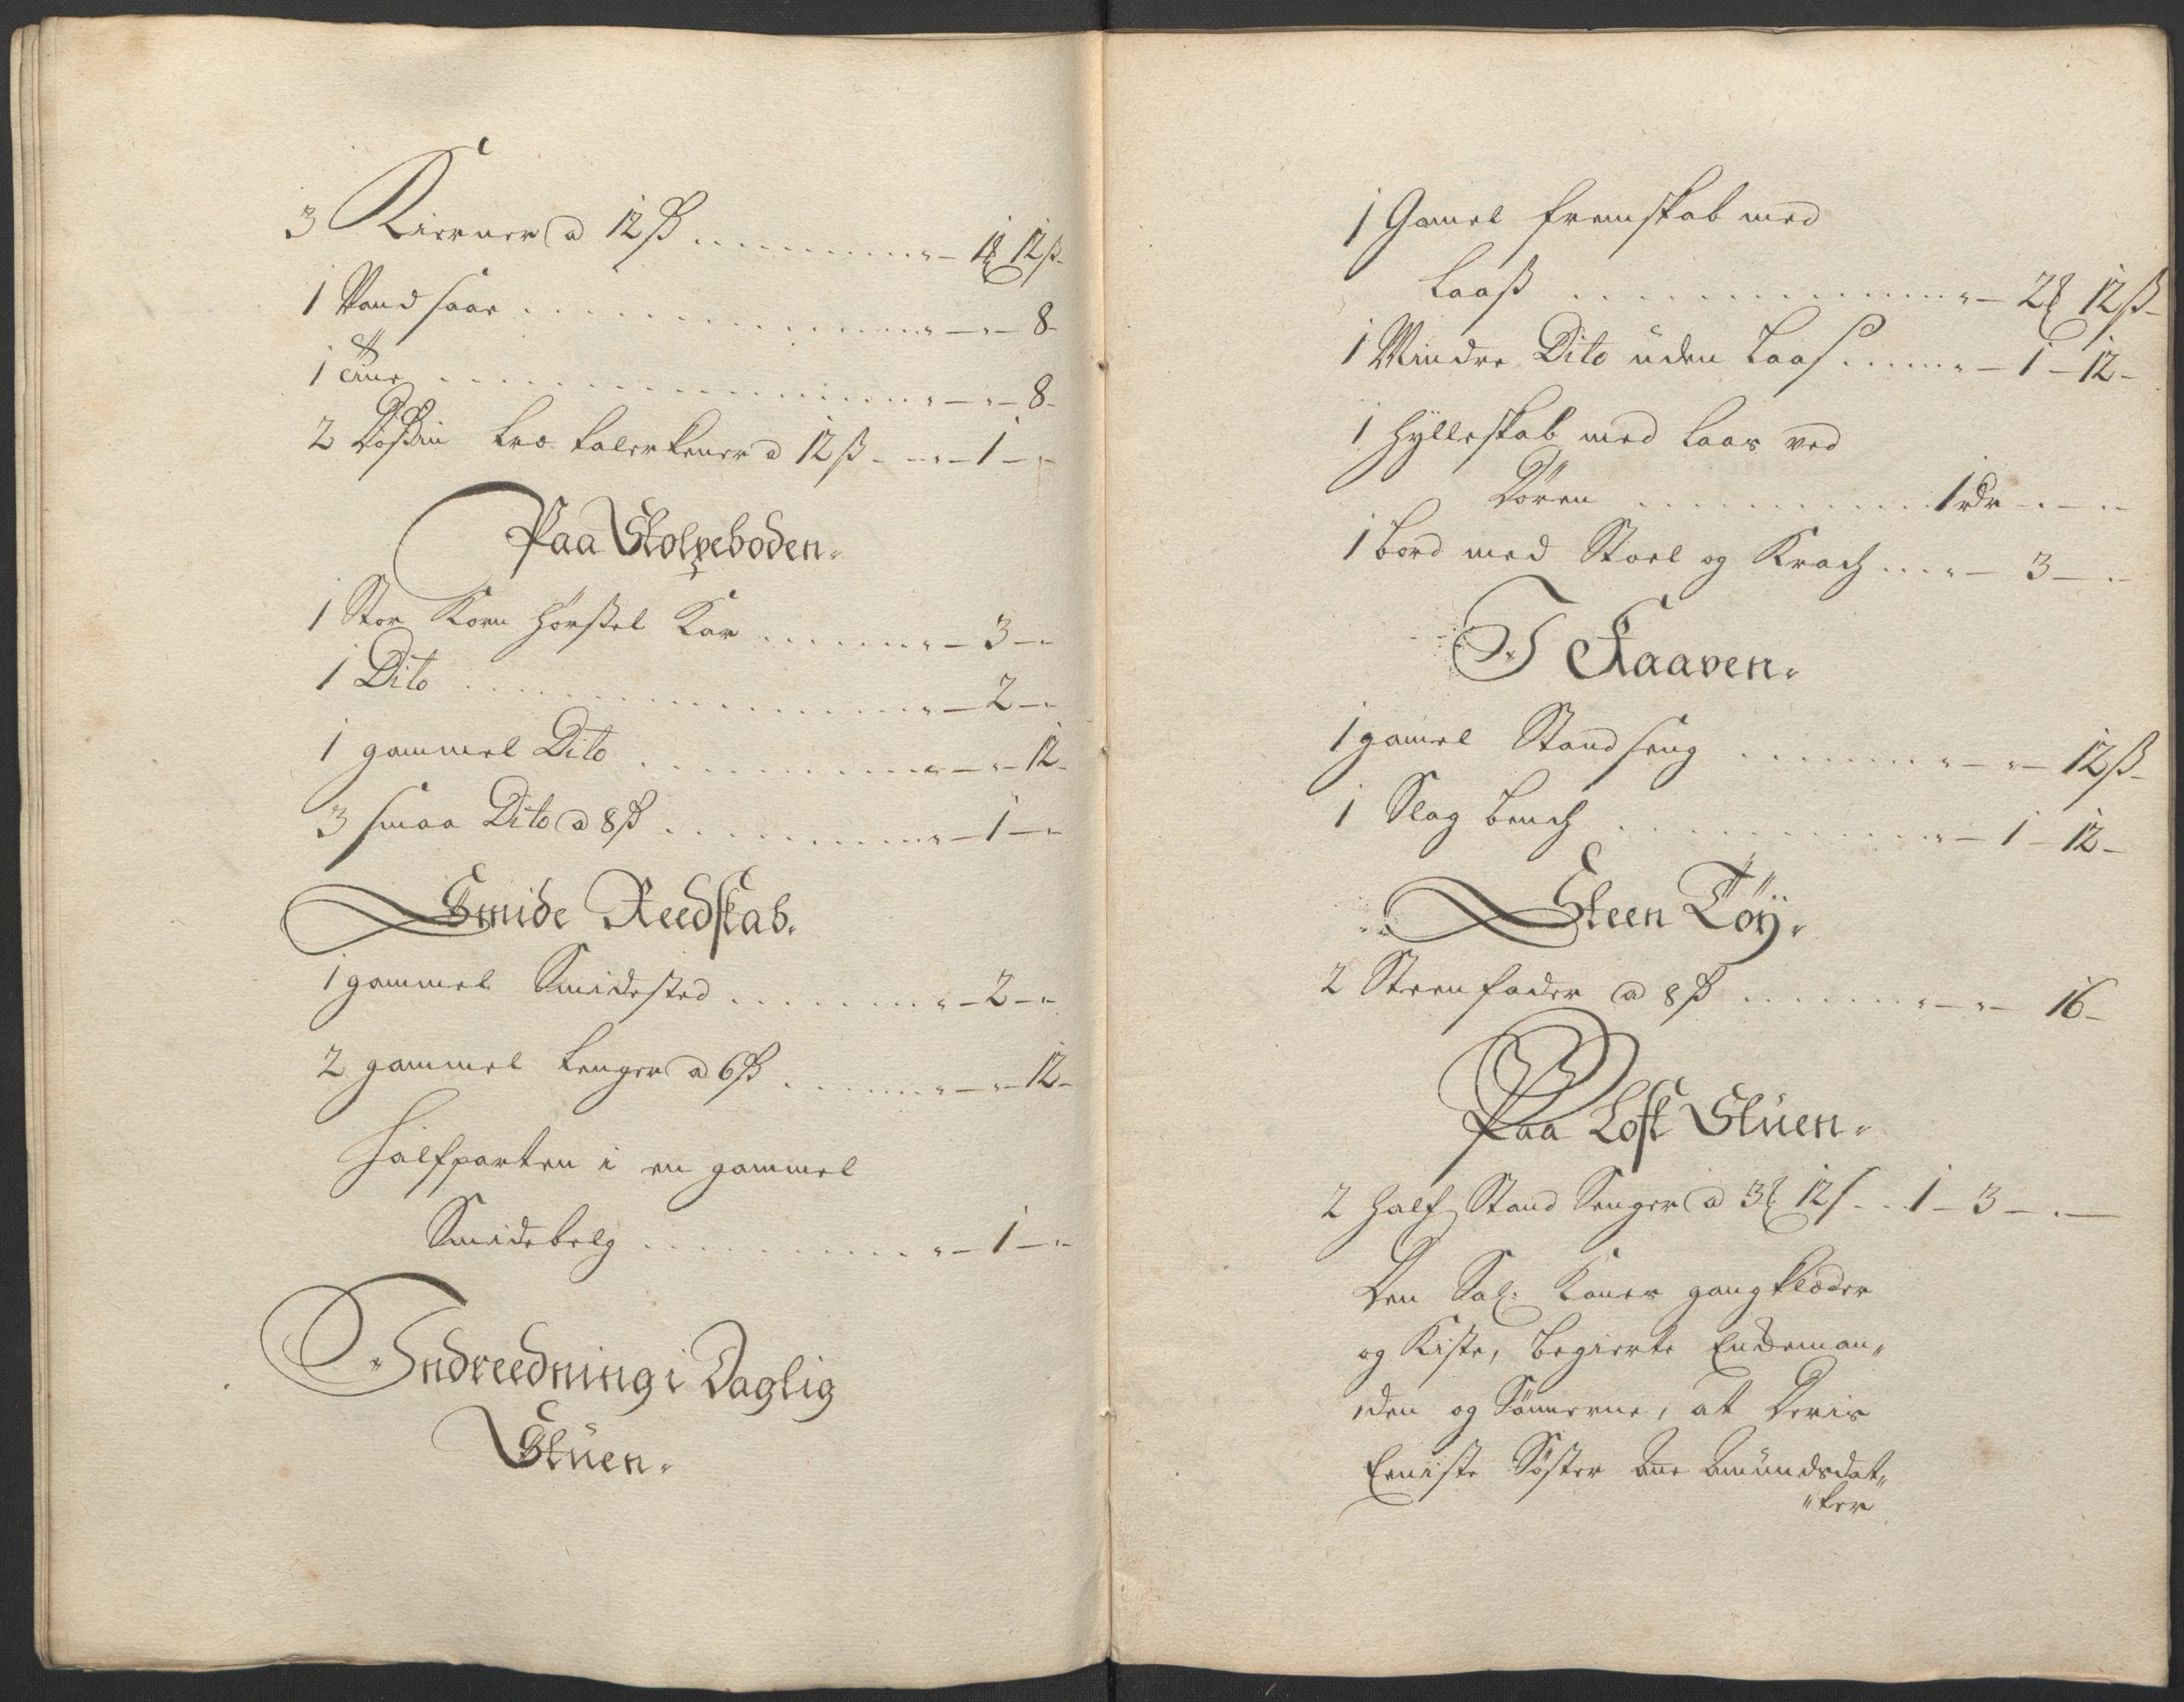 3 Kierner a 12 ß ......... „ – 1 ℥ 12 ß –
1 Vand saar ......... „ – „ – 8 –
1 Tine ......... „ – „ – 8 –
2 Doßin træ talerkener a 12 ß – „ – 1 – „ –
Paa Stolpeboden.
1 Stor Korn Hørßel Kar ...... „ – 3 – „
1 Dito ......... „ – 2 – „
1 gammel Dito ......... „ – „ – 12 –
3 smaa Dito a 8 ß ......... „ – 1 – „
Smide Reedskab.
1 gammel Smidested ......... „ – 2 – „
2 gammel tenger a 6 ß ...... „ – „ – 12 –
Halfparten i en gammel
Smidebelg ......... „ – 1 – „ –
Indreedning i Daglig
Stüen.
1 Gamel fremskab med
Laaß ......... „ – 2 ℥ 12 ß –
1 Mindre Dito üden Laas ..... „ – 1 – 12 –
1 Hylleskab med Laas ved
Døren ......... 1 rdr – „ – „
1 bord med Stoel og Krach .... „ – 3 – „ –
I Kaaven.
1 gamel Stand seng ....... „ – „ – 12 ß –
1 Slag bench ......... „ – 1 – 12 –
Steen Töÿ.
2 Steenfader a 8 ß ....... „ – „ – 16 –
Paa Loft Stüen.
2 half Stand Senger a 3 ℥ 12 ß – . . 1 – 3 – „ –
Den Sal: Kones gangklæder
og Kiste, begierte Enckeman„
den og Sønnerne, at Deris
Eeniste Søster Ane Amündsdat„
„ter